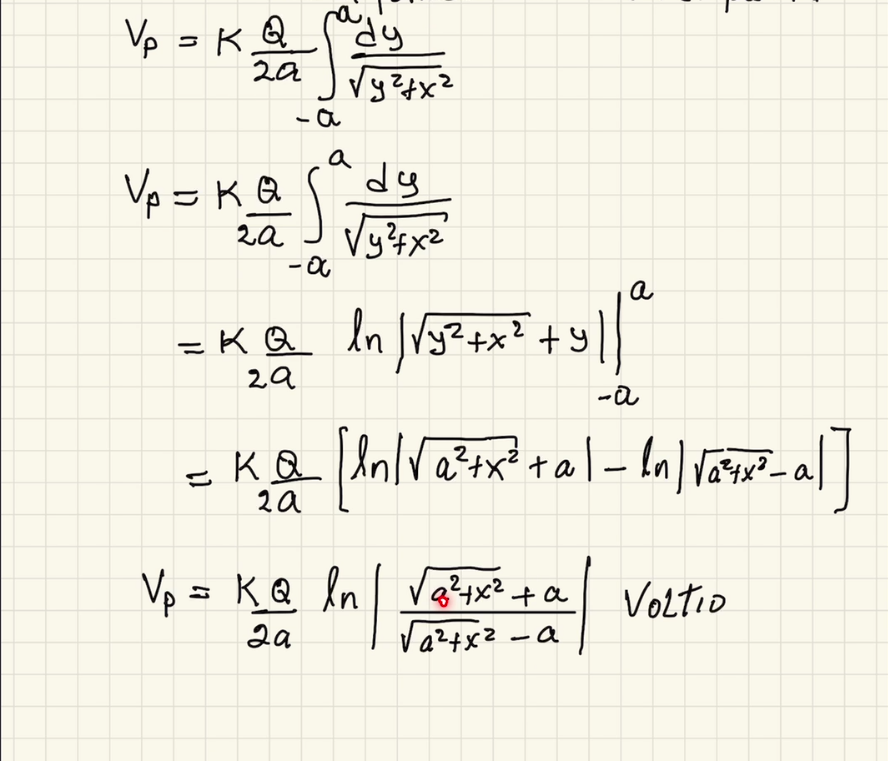 Vp = K Q/2a ∫_{-a}^{a} dy/√(y²+x²)
Vp = K Q/2a ∫_{-a}^{a} dy/√(y²+x²)
= K Q/2a ln |√(y²+x²) + y| |_{-a}^{a}
= K Q/2a [ln|√(a²+x²) + a| - ln|√(a²+x²) - a|]
Vp = K Q/2a ln |(√(a²+x²) + a)/(√(a²+x²) - a)| VOLTIO